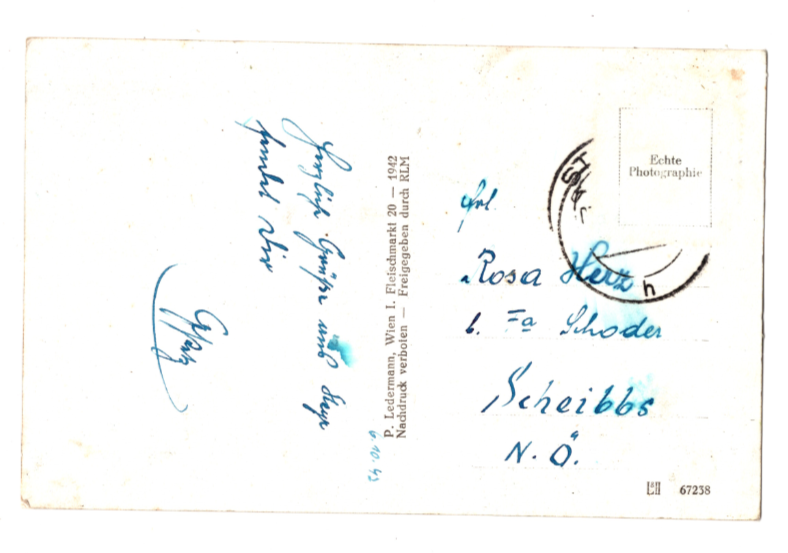 Herzliche Grüße aus Steyr
sendet Dir
P. Ledermann, Wien I. Fleischmarkt 20 — 1942
Nachdruck verboten — Freigegeben durch RLM
Echte
Photographie
Frl.
Rosa Herz
b. Fa Schoder
Scheibbs
N. Ö.
67238